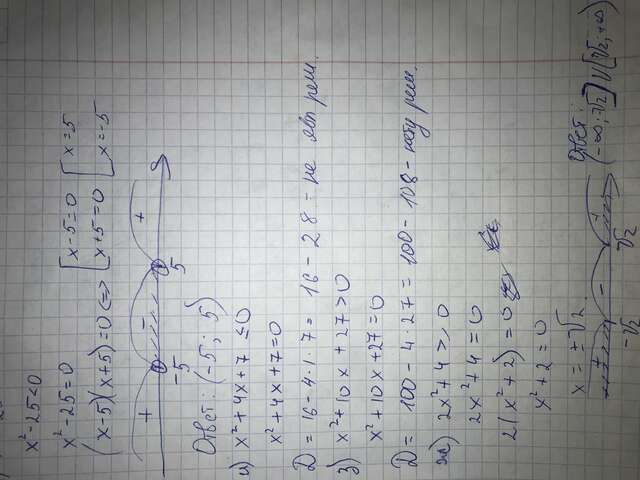 x²-25<0
x²-25=0
(x-5)(x+5)=0 <=> [x-5=0 [x=5
x+5=0 x=-5
+ - +
-5 5
Ответ: (-5; 5)
и) x²+4x+7≤0
x²+4x+7=0
D = 16-4·1·7 = 16-28 - не явл реш.
з) x²+10x+27>0
x²+10x+27=0
D = 100-4·27 = 100-108 - нету реш.
ж) 2x²+4≥0
2x²+4=0
2(x²+2)=0
x²+2=0
x=±√2.
+ -
-√2 √2
Ответ:
(-∞;-√2]U[√2;+∞)